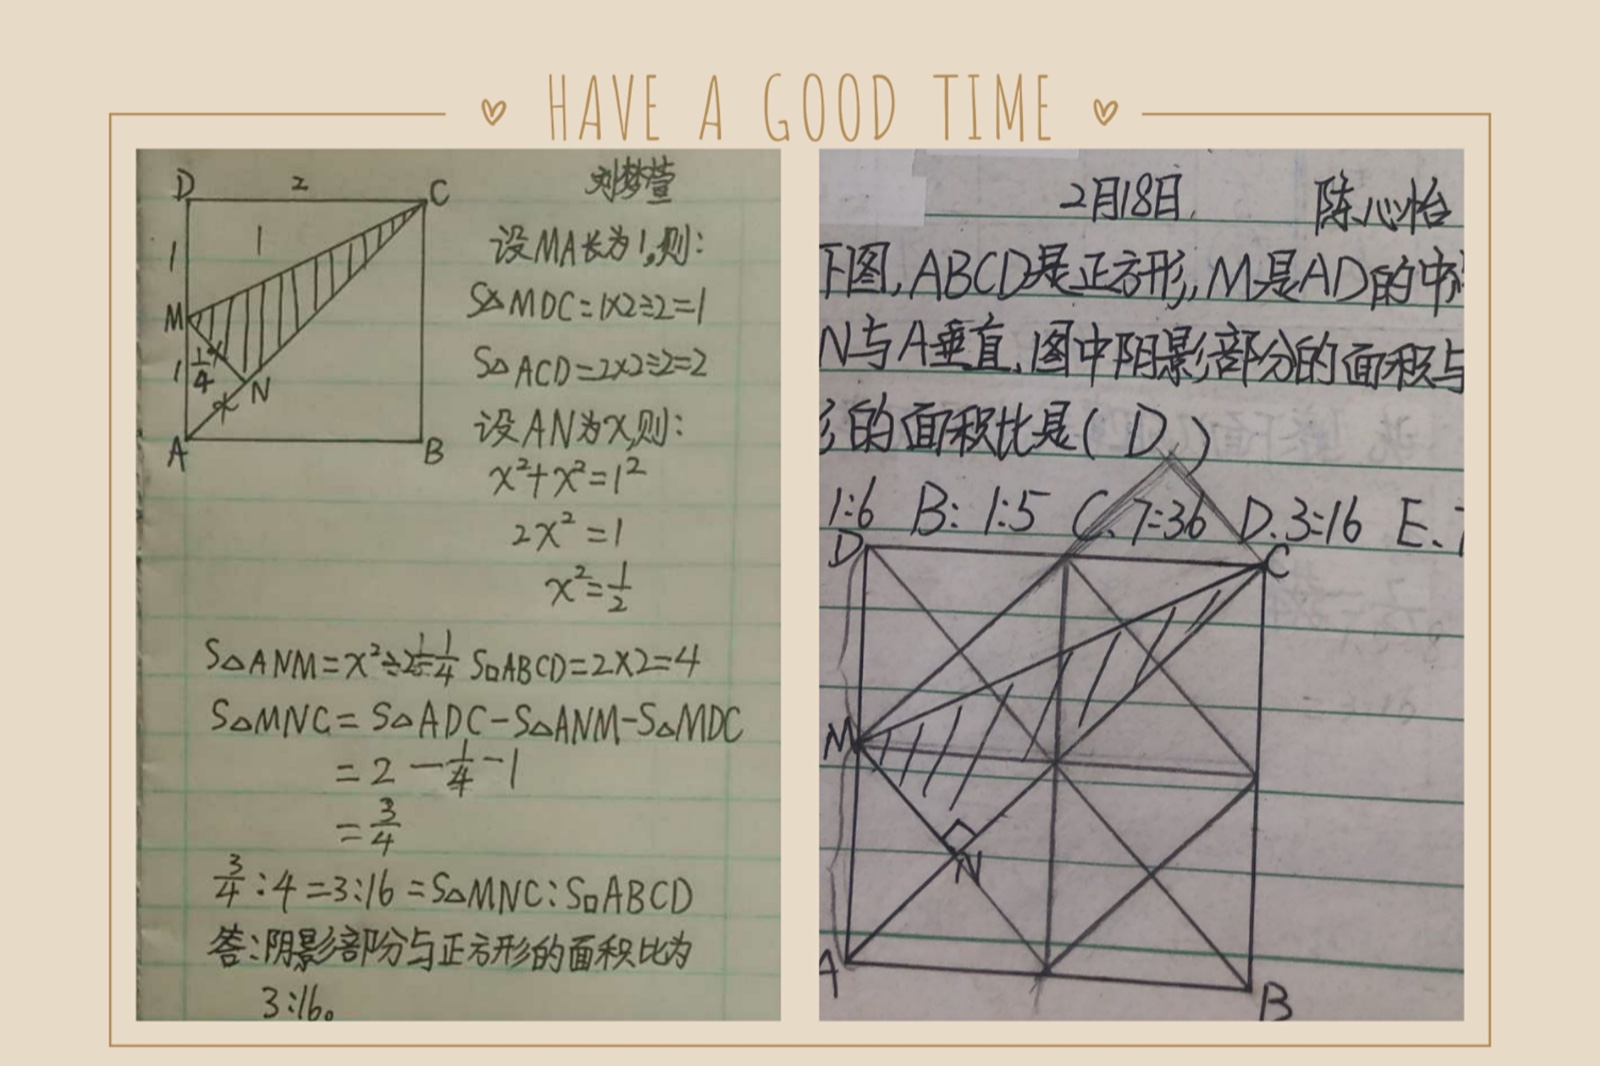 HAVE A GOOD TIME
刘梦萱
D 2 C
1 1
M
1 1/4 x N
x
A B
设MA长为1,则:
S△MDC=1×2÷2=1
S△ACD=2×2÷2=2
设AN为x,则:
x²+x²=1²
2x²=1
x²=1/2
S△ANM=x²÷2=1/4 S□ABCD=2×2=4
S△MNC=S△ADC-S△ANM-S△MDC
=2-1/4-1
=3/4
3/4:4=3:16=S△MNC:S□ABCD
答:阴影部分与正方形的面积比为
3:16。
2月18日. 陈心怡
下图,ABCD是正方形,M是AD的中
N与A垂直.图中阴影部分的面积与
的面积比是(D.)
1:6 B: 1:5 C. 7:36 D.3:16 E.
D C
M
N
A B